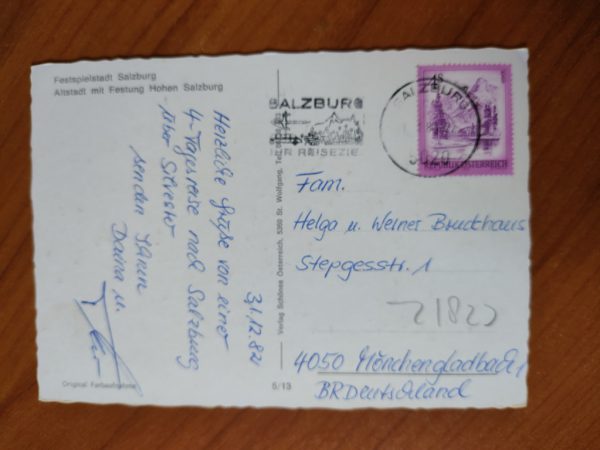 Festspielstadt Salzburg
Altstadt mit Festung Hohen Salzburg
31.12.82
Herzliche Grüße von einer
4-Tagesreise nach Salzburg
über Silvester
senden Ihnen
u.
Original Farbaufnahme
Verlag Schönes Österreich, 5360 St. Wolfgang, Tel.
5/13
SALZBURG
IHR REISEZIEL
SALZBURG
5020
4S
REPUBLIK ÖSTERREICH
Fam.
Helga u. Werner Bruckhaus
Stepgesstr. 1
21822
4050 Mönchengladbach 1
BRDeutschland